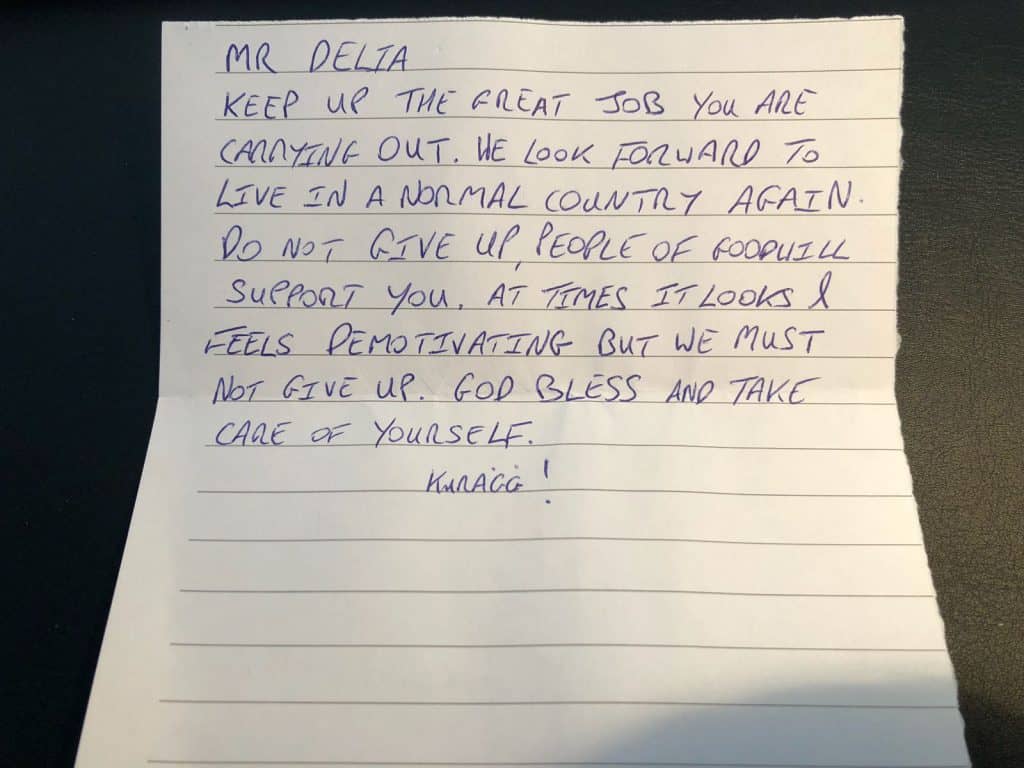 MR DELIA
KEEP UP THE GREAT JOB YOU ARE
CARRYING OUT. WE LOOK FORWARD TO
LIVE IN A NORMAL COUNTRY AGAIN.
DO NOT GIVE UP, PEOPLE OF GOODWILL
SUPPORT YOU. AT TIMES IT LOOKS &
FEELS DEMOTIVATING BUT WE MUST
NOT GIVE UP. GOD BLESS AND TAKE
CARE OF YOURSELF.
KURAĠĠ!